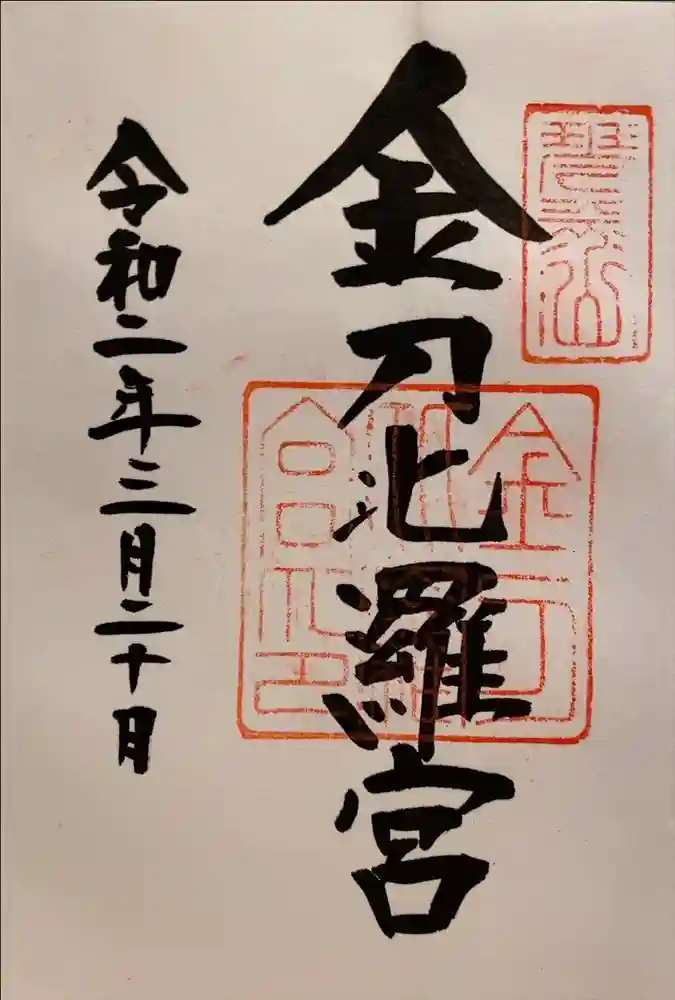 金刀比羅宮
令和二年三月二十日
金刀
比羅
宮印